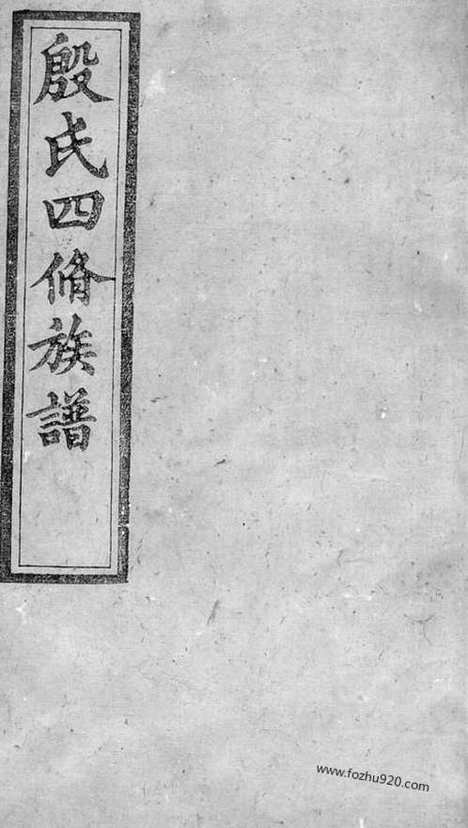 殷氏四脩族譜
www.fozhu920.com